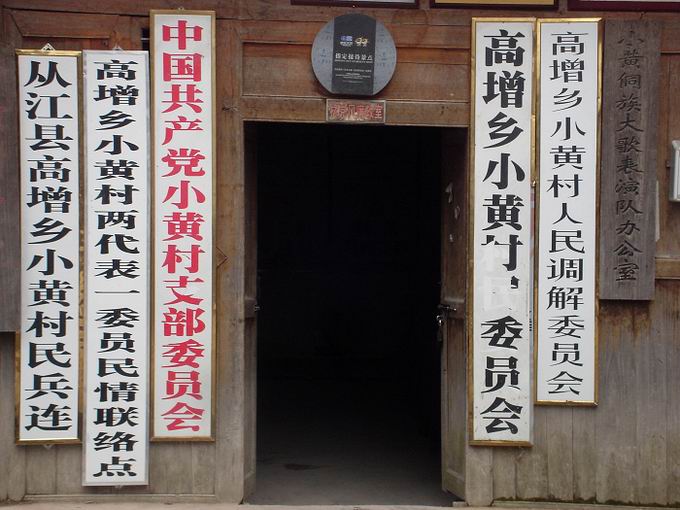 从江县高增乡小黄村民兵连
高增乡小黄村两代表一委员民情联络点
中国共产党小黄村支部委员会
指定接待景点
高增乡小黄村民委员会
高增乡小黄村人民调解委员会
小黄侗族大歌表演队办公室